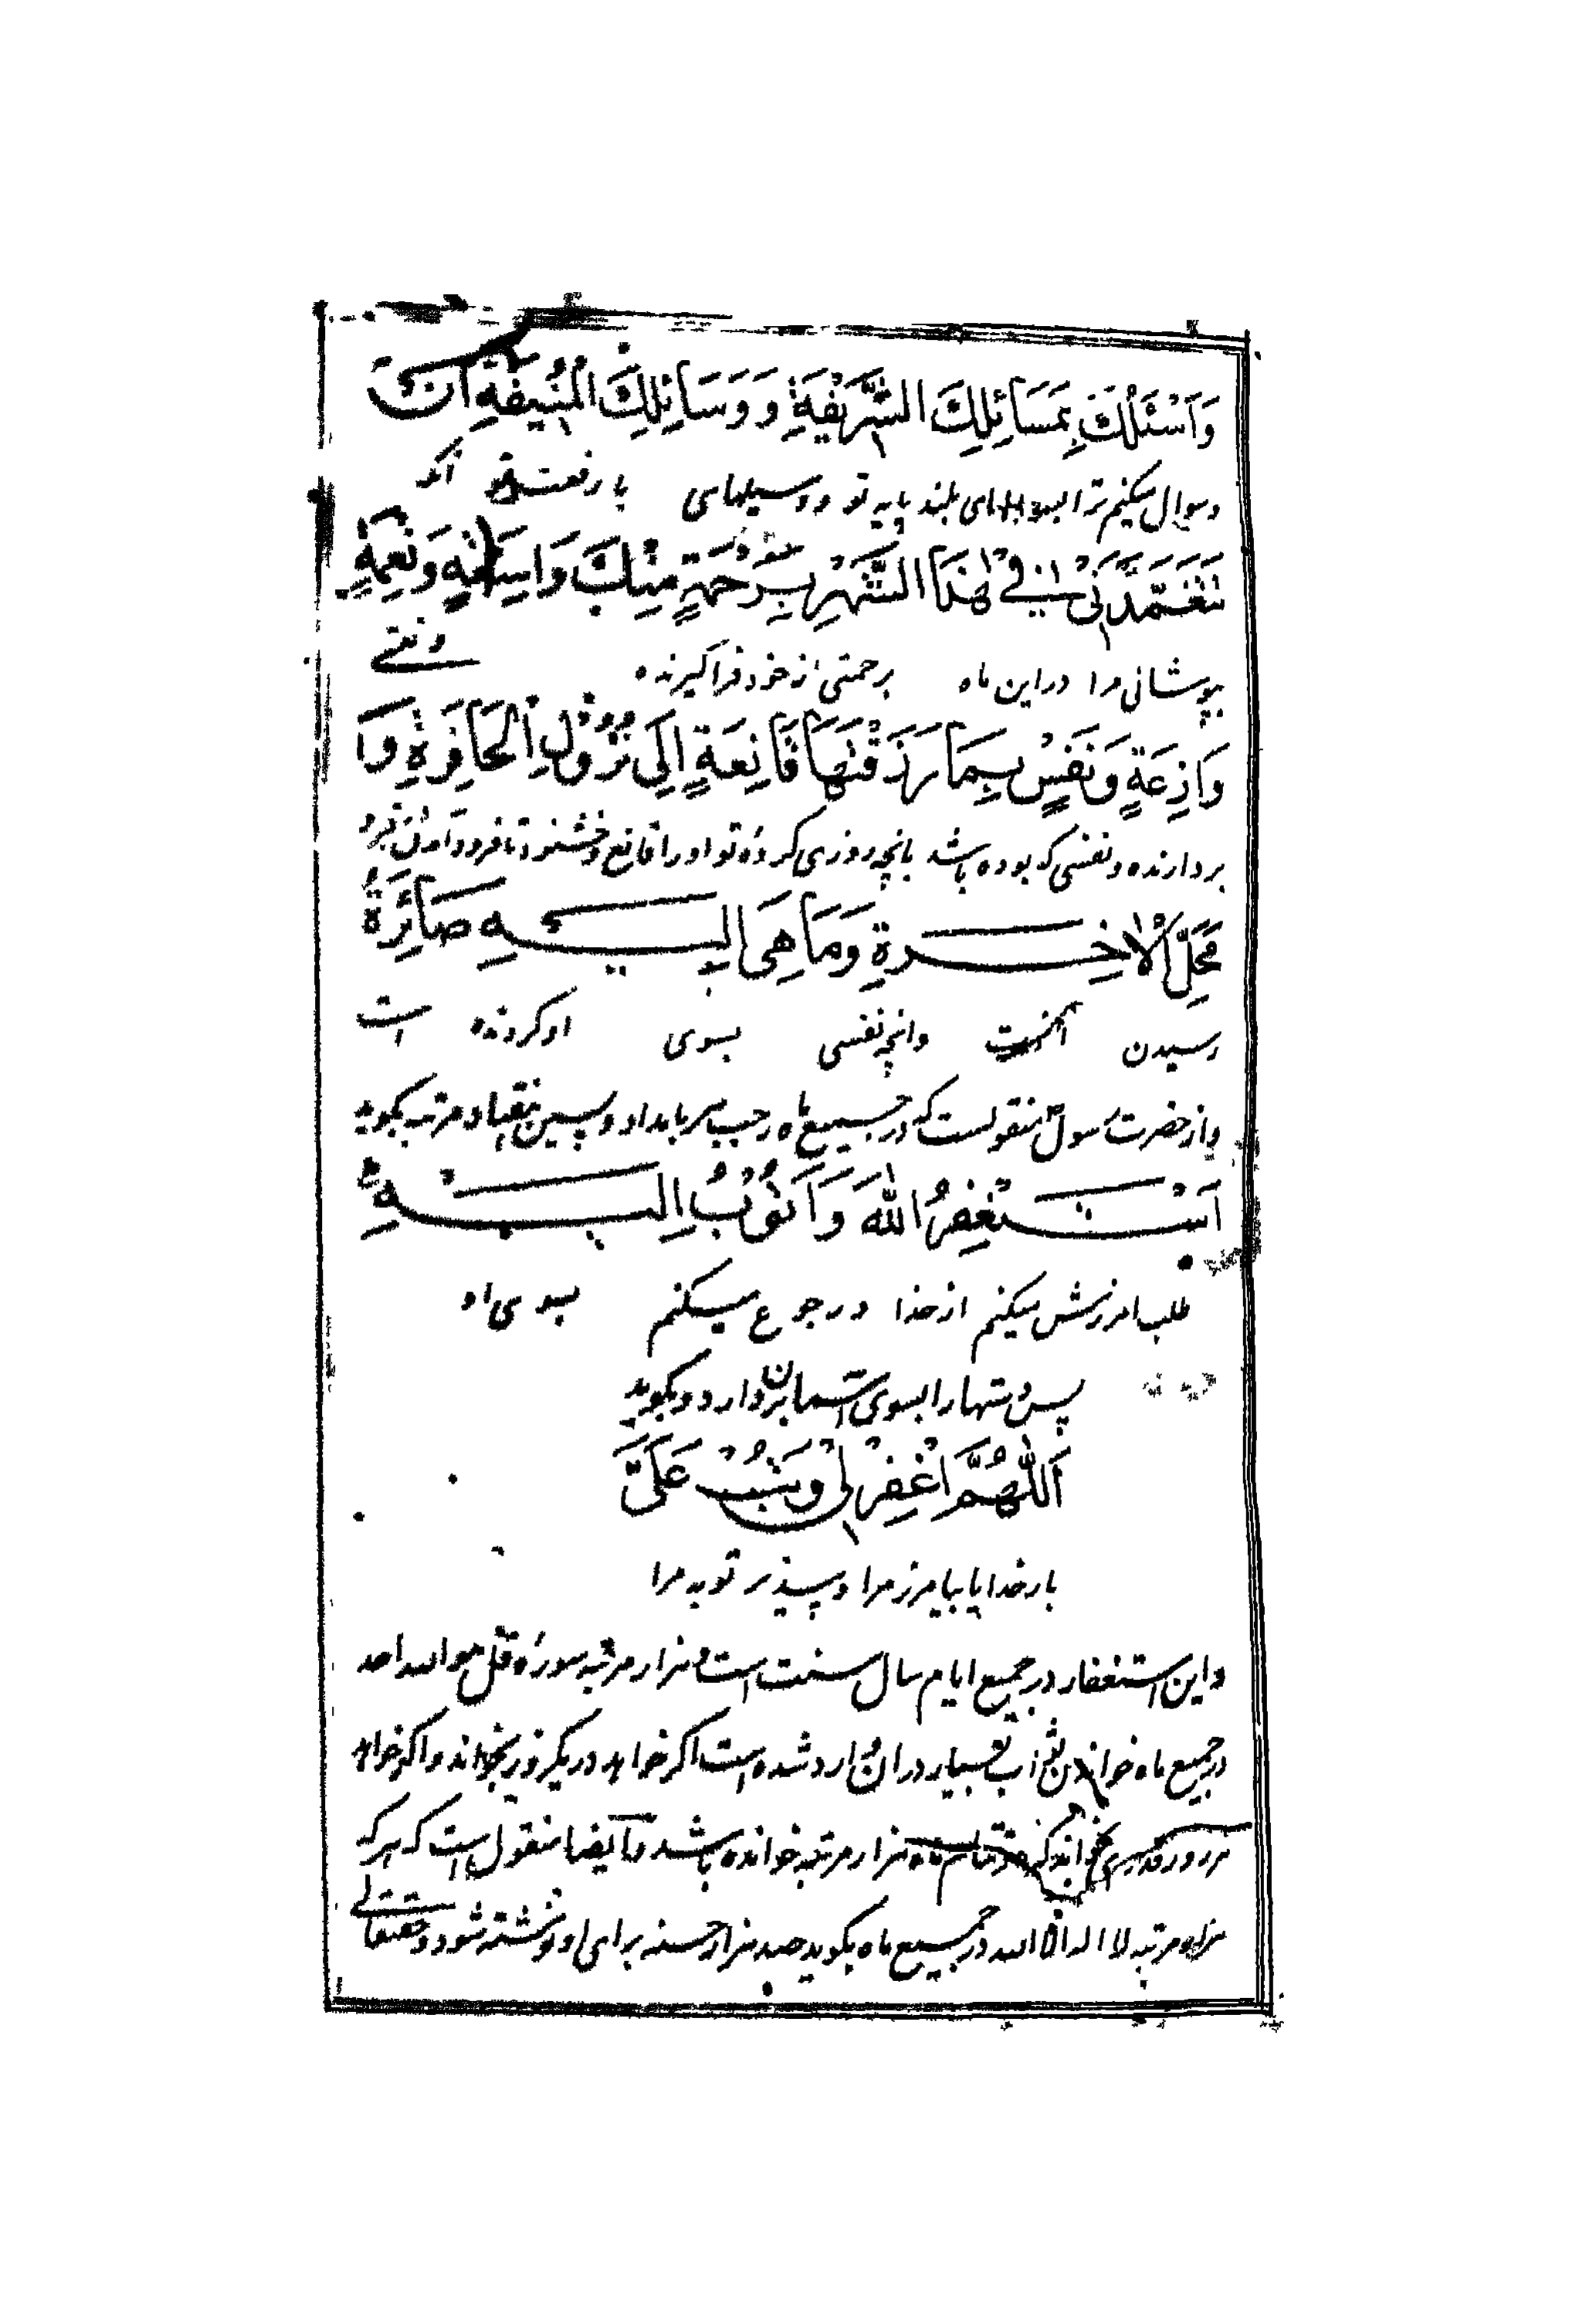 وَاَسْئَلُكَ بِمَسَائِلِكَ الشَّرِيفَةِ وَوَسَائِلِكَ الْمُنِيفَةِ اَنْ
وسوال میکنم ترا بسوالهای بلند پایه تو ووسیلهای با رفعت تو آنکه
تَتَغَمَّدَنِی فِی هٰذَا الشَّهْرِ بِرَحْمَةٍ مِنْكَ وَاسِعَةٍ وَنِعْمَةٍ
بپوشانی مرا دراین ماه برحمتی از خود فراگیرنده ونعمتی
وَازِعَةٍ وَنَفْسٍ بِمَا رَزَقْتَهَا قَانِعَةٍ اِلَی نُزُولِ الْحَافِرَةِ وَ
بردارنده ونفسی که بوده باشد بانچه روزی کردهٔ تو اورا قانع وخشنود تا فرود آمدن قبر و
مَحَلِّ الْاٰخِرَةِ وَمَا هِیَ اِلَیْهِ صَائِرَةٌ
رسیدن آخرت وانچه نفسی بسوی او گردنده است
واز حضرت رسول منقولست که در جمیع ماه رجب هر بامداد وپسین هفتاد مرتبه بگوید
اَسْتَغْفِرُ اللّٰهَ وَاَتُوبُ اِلَیْهِ
طلب امرزش میکنم از خدا ورجوع میکنم بسوی او
پس دستها را بسوی آسمان بردارد وبگوید
اَللّٰهُمَّ اغْفِرْ لِی وَتُبْ عَلَیَّ
بارخدایا بیامرز مرا وبپذیر توبه مرا
واین استغفار در جمیع ایام سال سنت است وهزار مرتبه سورهٔ قل هو الله احد
در جمیع ماه خواندن ثواب بسیار دران وارد شده است اگر خواهد در یکروز بخواند واگر خواهد
هر روز قدری بخواند که در تمام ماه هزار مرتبه خوانده باشد وایضا منقول است که هر که
هزار مرتبه لا اله الا الله در جمیع ماه بگوید صد هزار حسنه برای او نوشته شود وحقتعالی